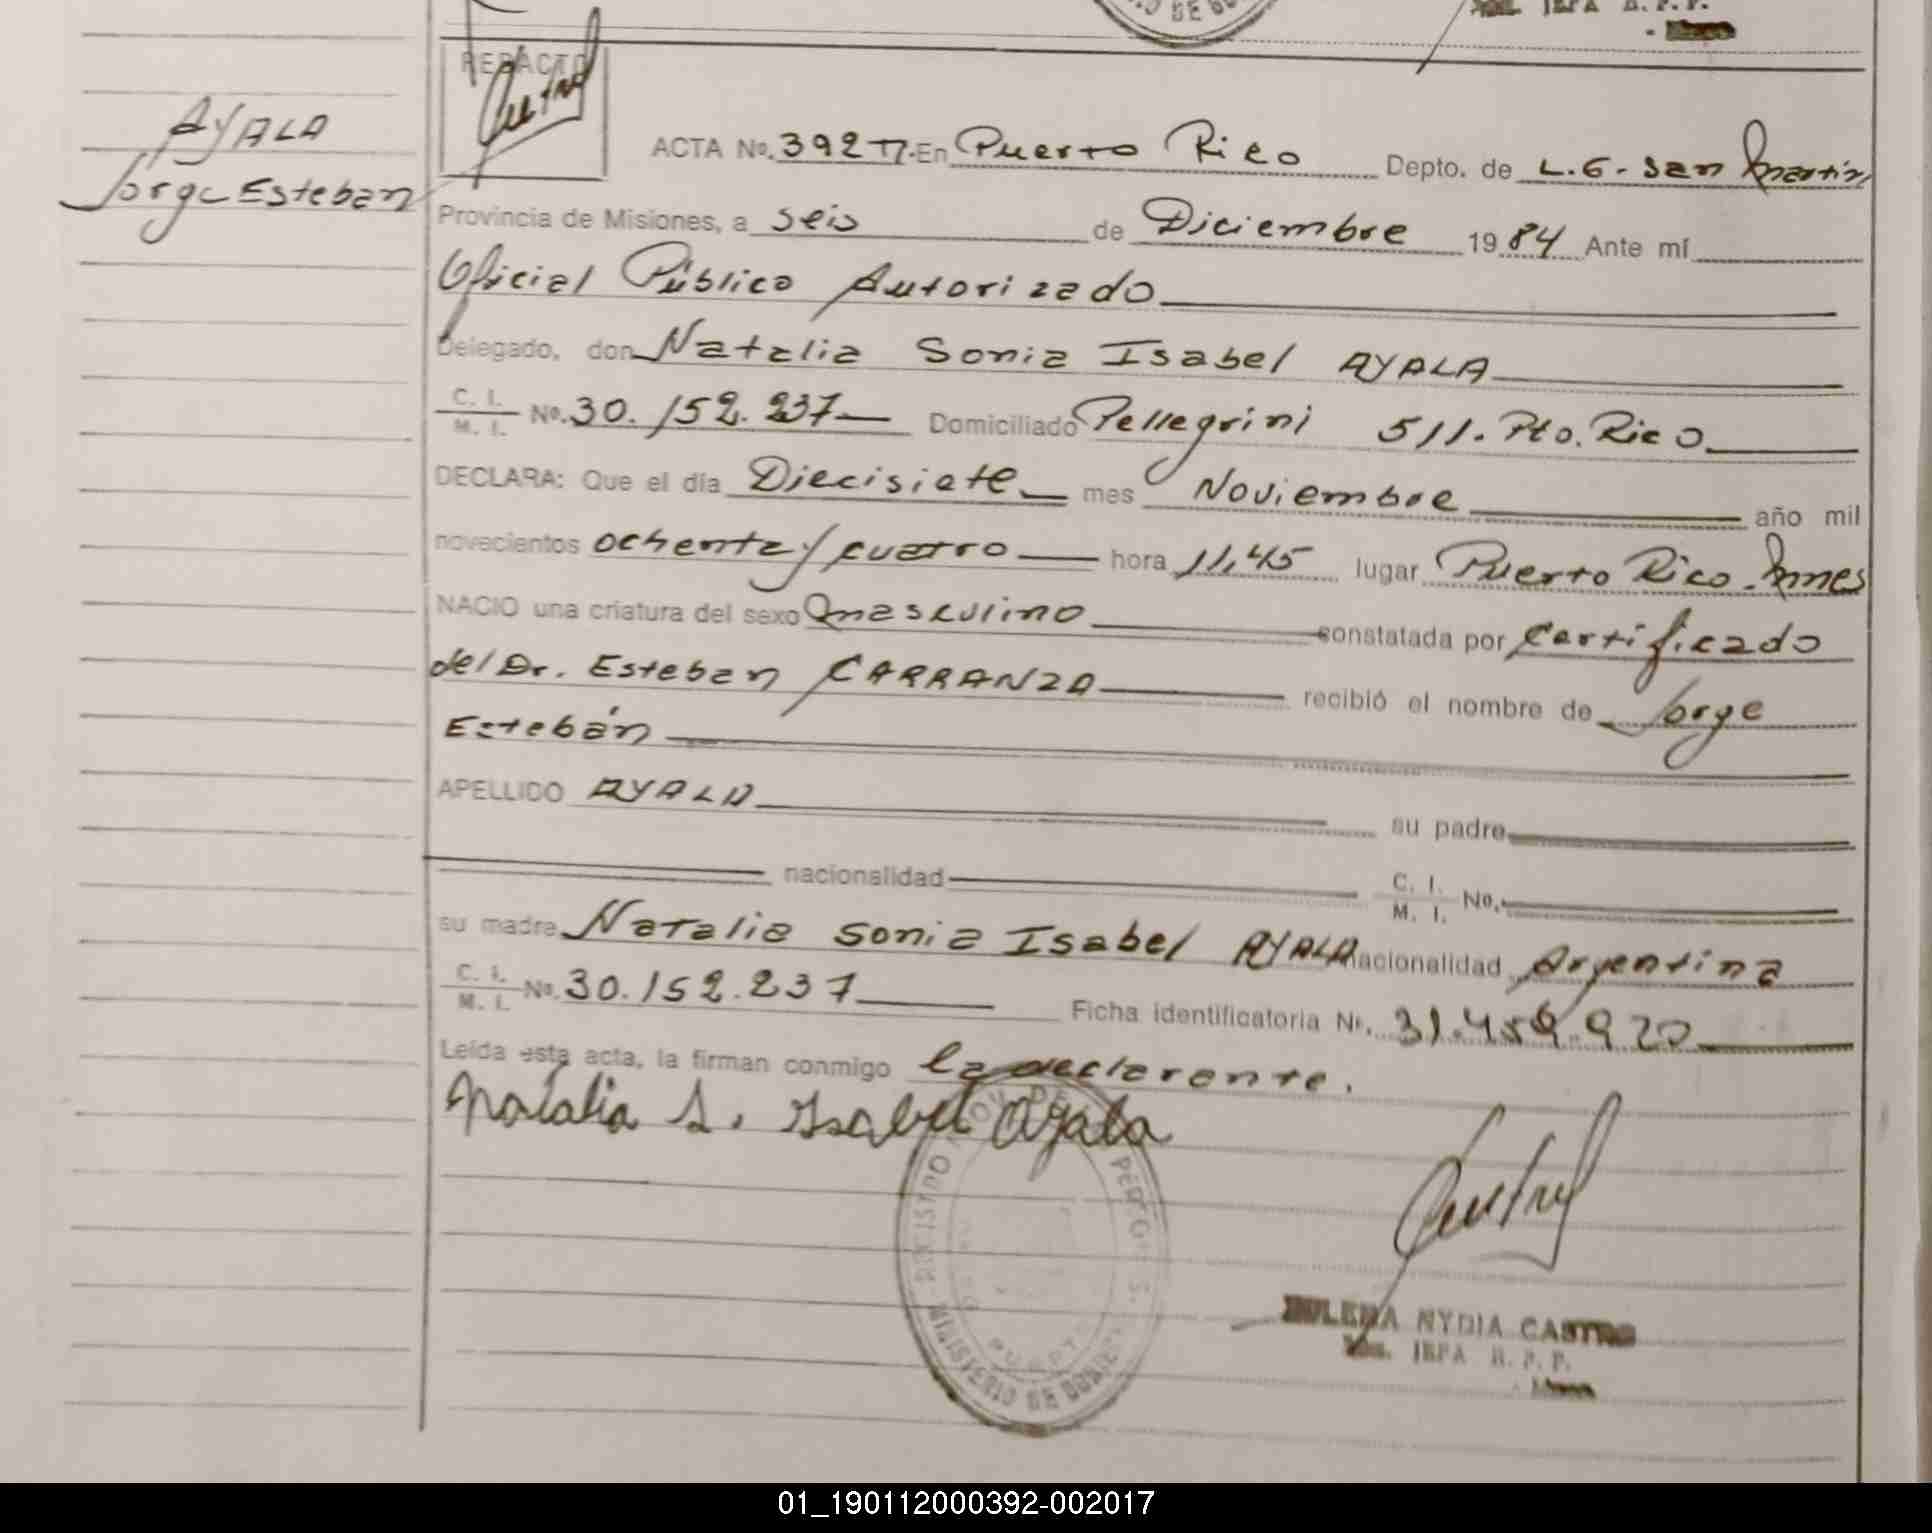 REDACTO
AYALA
Jorge Esteban
ACTA No. 392 T7. En Puerto Rico Depto. de L. G. San Martín
Provincia de Misiones, a seis de Diciembre 1984 Ante mí
Oficial Público Autorizado
Delegado, don Natalia Sonia Isabel AYALA
C. I. / M. I. No. 30.152.237 Domiciliado Pellegrini 511. Pto. Rico
DECLARA: Que el día Diecisiete mes Noviembre año mil
novecientos ochenta y cuatro hora 11,45 lugar Puerto Rico. Mnes
NACIO una criatura del sexo masculino constatada por Certificado
del Dr. Esteban CARRANZA recibió el nombre de Jorge
Estebán
APELLIDO AYALA su padre
nacionalidad C. I. / M. I. No.
su madre Natalia Sonia Isabel AYALA nacionalidad Argentina
C. I. / M. I. No. 30.152.237 Ficha identificatoria No. 31.459.920
Leída esta acta, la firman conmigo la declarante.
Natalia S. Isabel Ayala
NYDIA CASTRO
JEFA R. P. P.
01_190112000392-002017